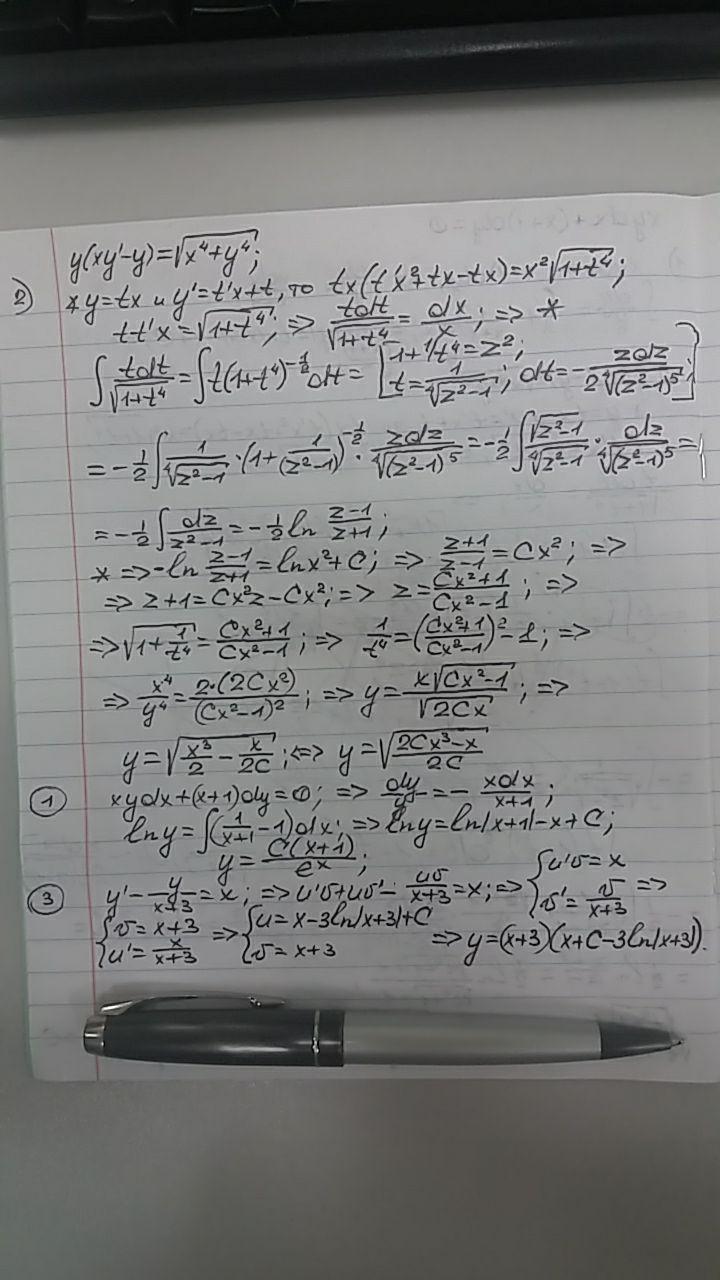 y(xy'-y)=√(x⁴+y⁴);
2) * y=tx и y'=t'x+t, то tx(t'x²+tx-tx)=x²√(1+t⁴);
t·t'x=√(1+t⁴); => tdt/√(1+t⁴) = dx/x; => *
∫ tdt/√(1+t⁴) = ∫t(1+t⁴)^(-1/2)dt = [1+1/t⁴=z²; t=1/⁴√(z²-1); dt=-zdz/(2⁴√((z²-1)⁵));]
= -1/2∫ 1/⁴√(z²-1) · (1+1/(z²-1))^(-1/2) · zdz/⁴√((z²-1)⁵) = -1/2∫ √(z²-1)/⁴√(z²-1) · dz/⁴√((z²-1)⁵) =
= -1/2∫ dz/(z²-1) = -1/2 ln (z-1)/(z+1);
* => -ln (z-1)/(z+1) = lnx²+C; => (z+1)/(z-1) = Cx²; =>
=> z+1=Cx²z-Cx²; => z=(Cx²+1)/(Cx²-1); =>
=> √(1+1/t⁴) = (Cx²+1)/(Cx²-1); => 1/t⁴=((Cx²+1)/(Cx²-1))²-1; =>
=> x⁴/y⁴ = 2·(2Cx²)/(Cx²-1)²; => y = x√(Cx²-1)/√(2Cx); =>
y=√(x³/2 - x/2C); <=> y=√((2Cx³-x)/2C)
1 xydx+(x+1)dy=0; => dy/y = - xdx/(x+1);
lny=∫(1/(x+1) -1)dx; => lny=ln|x+1|-x+C;
y= C(x+1)/eˣ;
3 y'- y/(x+3) = x; => u'v+uv'- uv/(x+3) = x; => {u'v=x v'=v/(x+3) =>
{v=x+3 u'=x/(x+3) => {u=x-3ln|x+3|+C v=x+3 => y=(x+3)(x+C-3ln|x+3|).